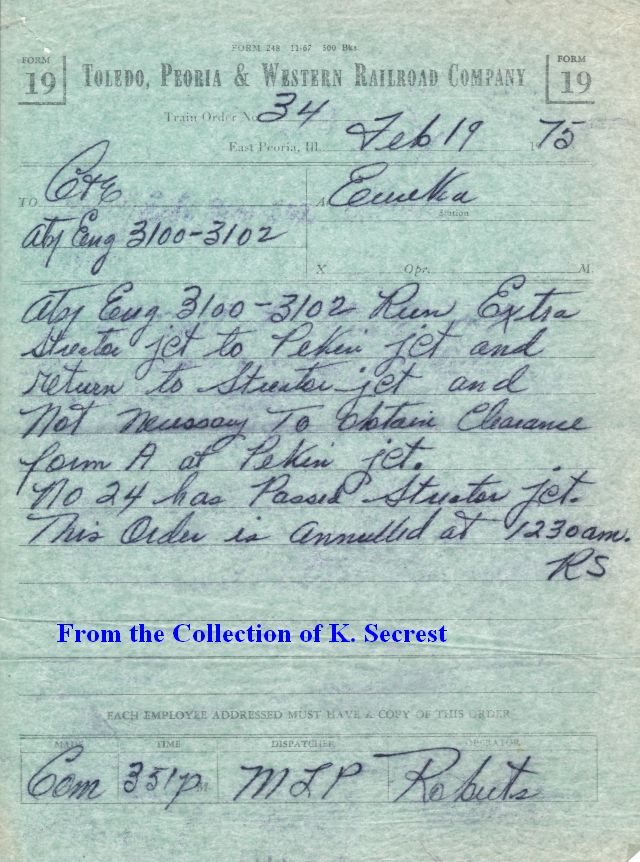 FORM 248 11-67 500 Bks
FORM 19 TOLEDO, PEORIA & WESTERN RAILROAD COMPANY FORM 19
Train Order No. 34
East Peoria, Ill. Feb 19 1 75
TO C&E A Eureka
Station
ATSF Eng 3100-3102
X Opr. M.
ATSF Eng 3100-3102 Run Extra
Streator jct to Pekin jct and
return to Streator jct and
Not necessary To obtain Clearance
form A at Pekin jct.
No 24 has Passed Streator jct.
This Order is annulled at 1230am.
RS
From the Collection of K. Secrest
EACH EMPLOYEE ADDRESSED MUST HAVE A COPY OF THIS ORDER
MADE TIME DISPATCHER OPERATOR
Com 351P M. MLP Roberts